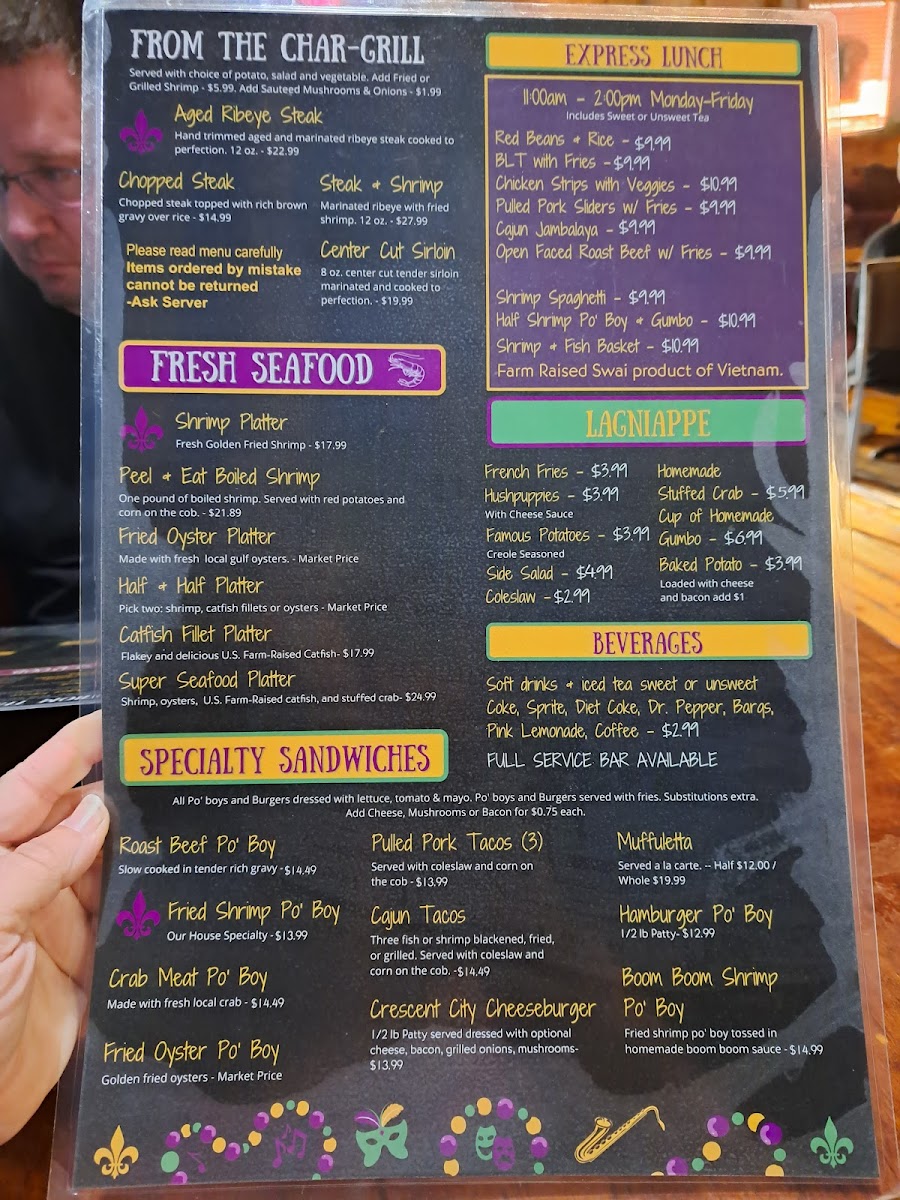 FROM THE CHAR-GRILL
Served with choice of potato, salad and vegetable. Add Fried or
Grilled Shrimp - $5.99. Add Sauteed Mushrooms & Onions - $1.99
Aged Ribeye Steak
Hand trimmed aged and marinated ribeye steak cooked to
perfection. 12 oz. - $22.99
Chopped Steak
Chopped steak topped with rich brown
gravy over rice - $14.99
Steak & Shrimp
Marinated ribeye with fried
shrimp. 12 oz. - $27.99
Please read menu carefully
Items ordered by mistake
cannot be returned
-Ask Server
Center Cut Sirloin
8 oz. center cut tender sirloin
marinated and cooked to
perfection. - $19.99
FRESH SEAFOOD
Shrimp Platter
Fresh Golden Fried Shrimp - $17.99
Peel & Eat Boiled Shrimp
One pound of boiled shrimp. Served with red potatoes and
corn on the cob. - $21.89
Fried Oyster Platter
Made with fresh local gulf oysters. - Market Price
Half & Half Platter
Pick two: shrimp, catfish fillets or oysters - Market Price
Catfish Fillet Platter
Flakey and delicious U.S. Farm-Raised Catfish- $17.99
Super Seafood Platter
Shrimp, oysters, U.S. Farm-Raised catfish, and stuffed crab- $24.99
EXPRESS LUNCH
11:00am - 2:00pm Monday-Friday
Includes Sweet or Unsweet Tea
Red Beans & Rice - $9.99
BLT with Fries - $9.99
Chicken Strips with Veggies - $10.99
Pulled Pork Sliders w/ Fries - $9.99
Cajun Jambalaya - $9.99
Open Faced Roast Beef w/ Fries - $9.99
Shrimp Spaghetti - $9.99
Half Shrimp Po' Boy & Gumbo - $10.99
Shrimp & Fish Basket - $10.99
Farm Raised Swai product of Vietnam.
LAGNIAPPE
French Fries - $3.99
Hushpuppies - $3.99
With Cheese Sauce
Famous Potatoes - $3.99
Creole Seasoned
Side Salad - $4.99
Coleslaw - $2.99
Homemade
Stuffed Crab - $5.99
Cup of Homemade
Gumbo - $6.99
Baked Potato - $3.99
Loaded with cheese
and bacon add $1
BEVERAGES
Soft drinks & iced tea sweet or unsweet
Coke, Sprite, Diet Coke, Dr. Pepper, Barqs,
Pink Lemonade, Coffee - $2.99
FULL SERVICE BAR AVAILABLE
SPECIALTY SANDWICHES
All Po' boys and Burgers dressed with lettuce, tomato & mayo. Po' boys and Burgers served with fries. Substitutions extra.
Add Cheese, Mushrooms or Bacon for $0.75 each.
Roast Beef Po' Boy
Slow cooked in tender rich gravy - $14.49
Fried Shrimp Po' Boy
Our House Specialty - $13.99
Crab Meat Po' Boy
Made with fresh local crab - $14.49
Fried Oyster Po' Boy
Golden fried oysters - Market Price
Pulled Pork Tacos (3)
Served with coleslaw and corn on
the cob - $13.99
Cajun Tacos
Three fish or shrimp blackened, fried,
or grilled. Served with coleslaw and
corn on the cob. - $14.49
Crescent City Cheeseburger
1/2 lb Patty served dressed with optional
cheese, bacon, grilled onions, mushrooms-
$13.99
Muffuletta
Served a la carte. -- Half $12.00 /
Whole $19.99
Hamburger Po' Boy
1/2 lb Patty- $12.99
Boom Boom Shrimp
Po' Boy
Fried shrimp po' boy tossed in
homemade boom boom sauce - $14.99